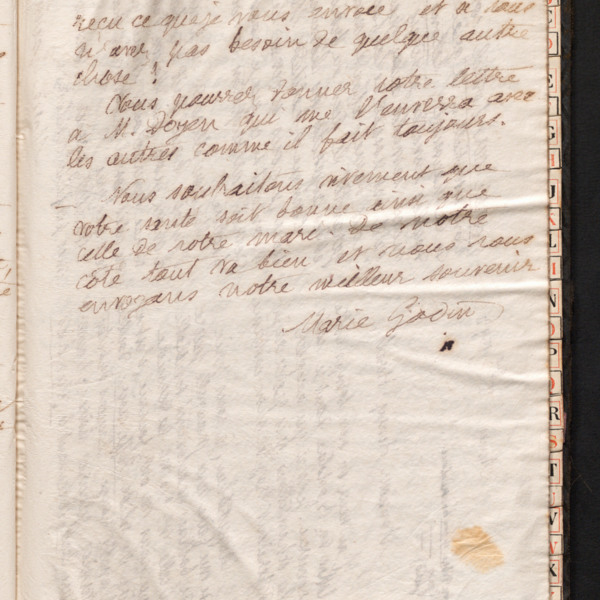 reçu ce que je vous envoie et si vous
n'avez pas besoin de quelque autre
chose ?
Vous pourrez donner votre lettre
à M. Doyen qui me l'enverra avec
les autres comme il fait toujours.
Nous souhaitons vivement que
votre santé soit bonne ainsi que
celle de votre mari. De notre
côté tout va bien et nous vous
envoyons notre meilleur souvenir
Marie Godin
E
G
H
J
K
L
I
N
O
P
Q
R
S
T
U
V
V
X